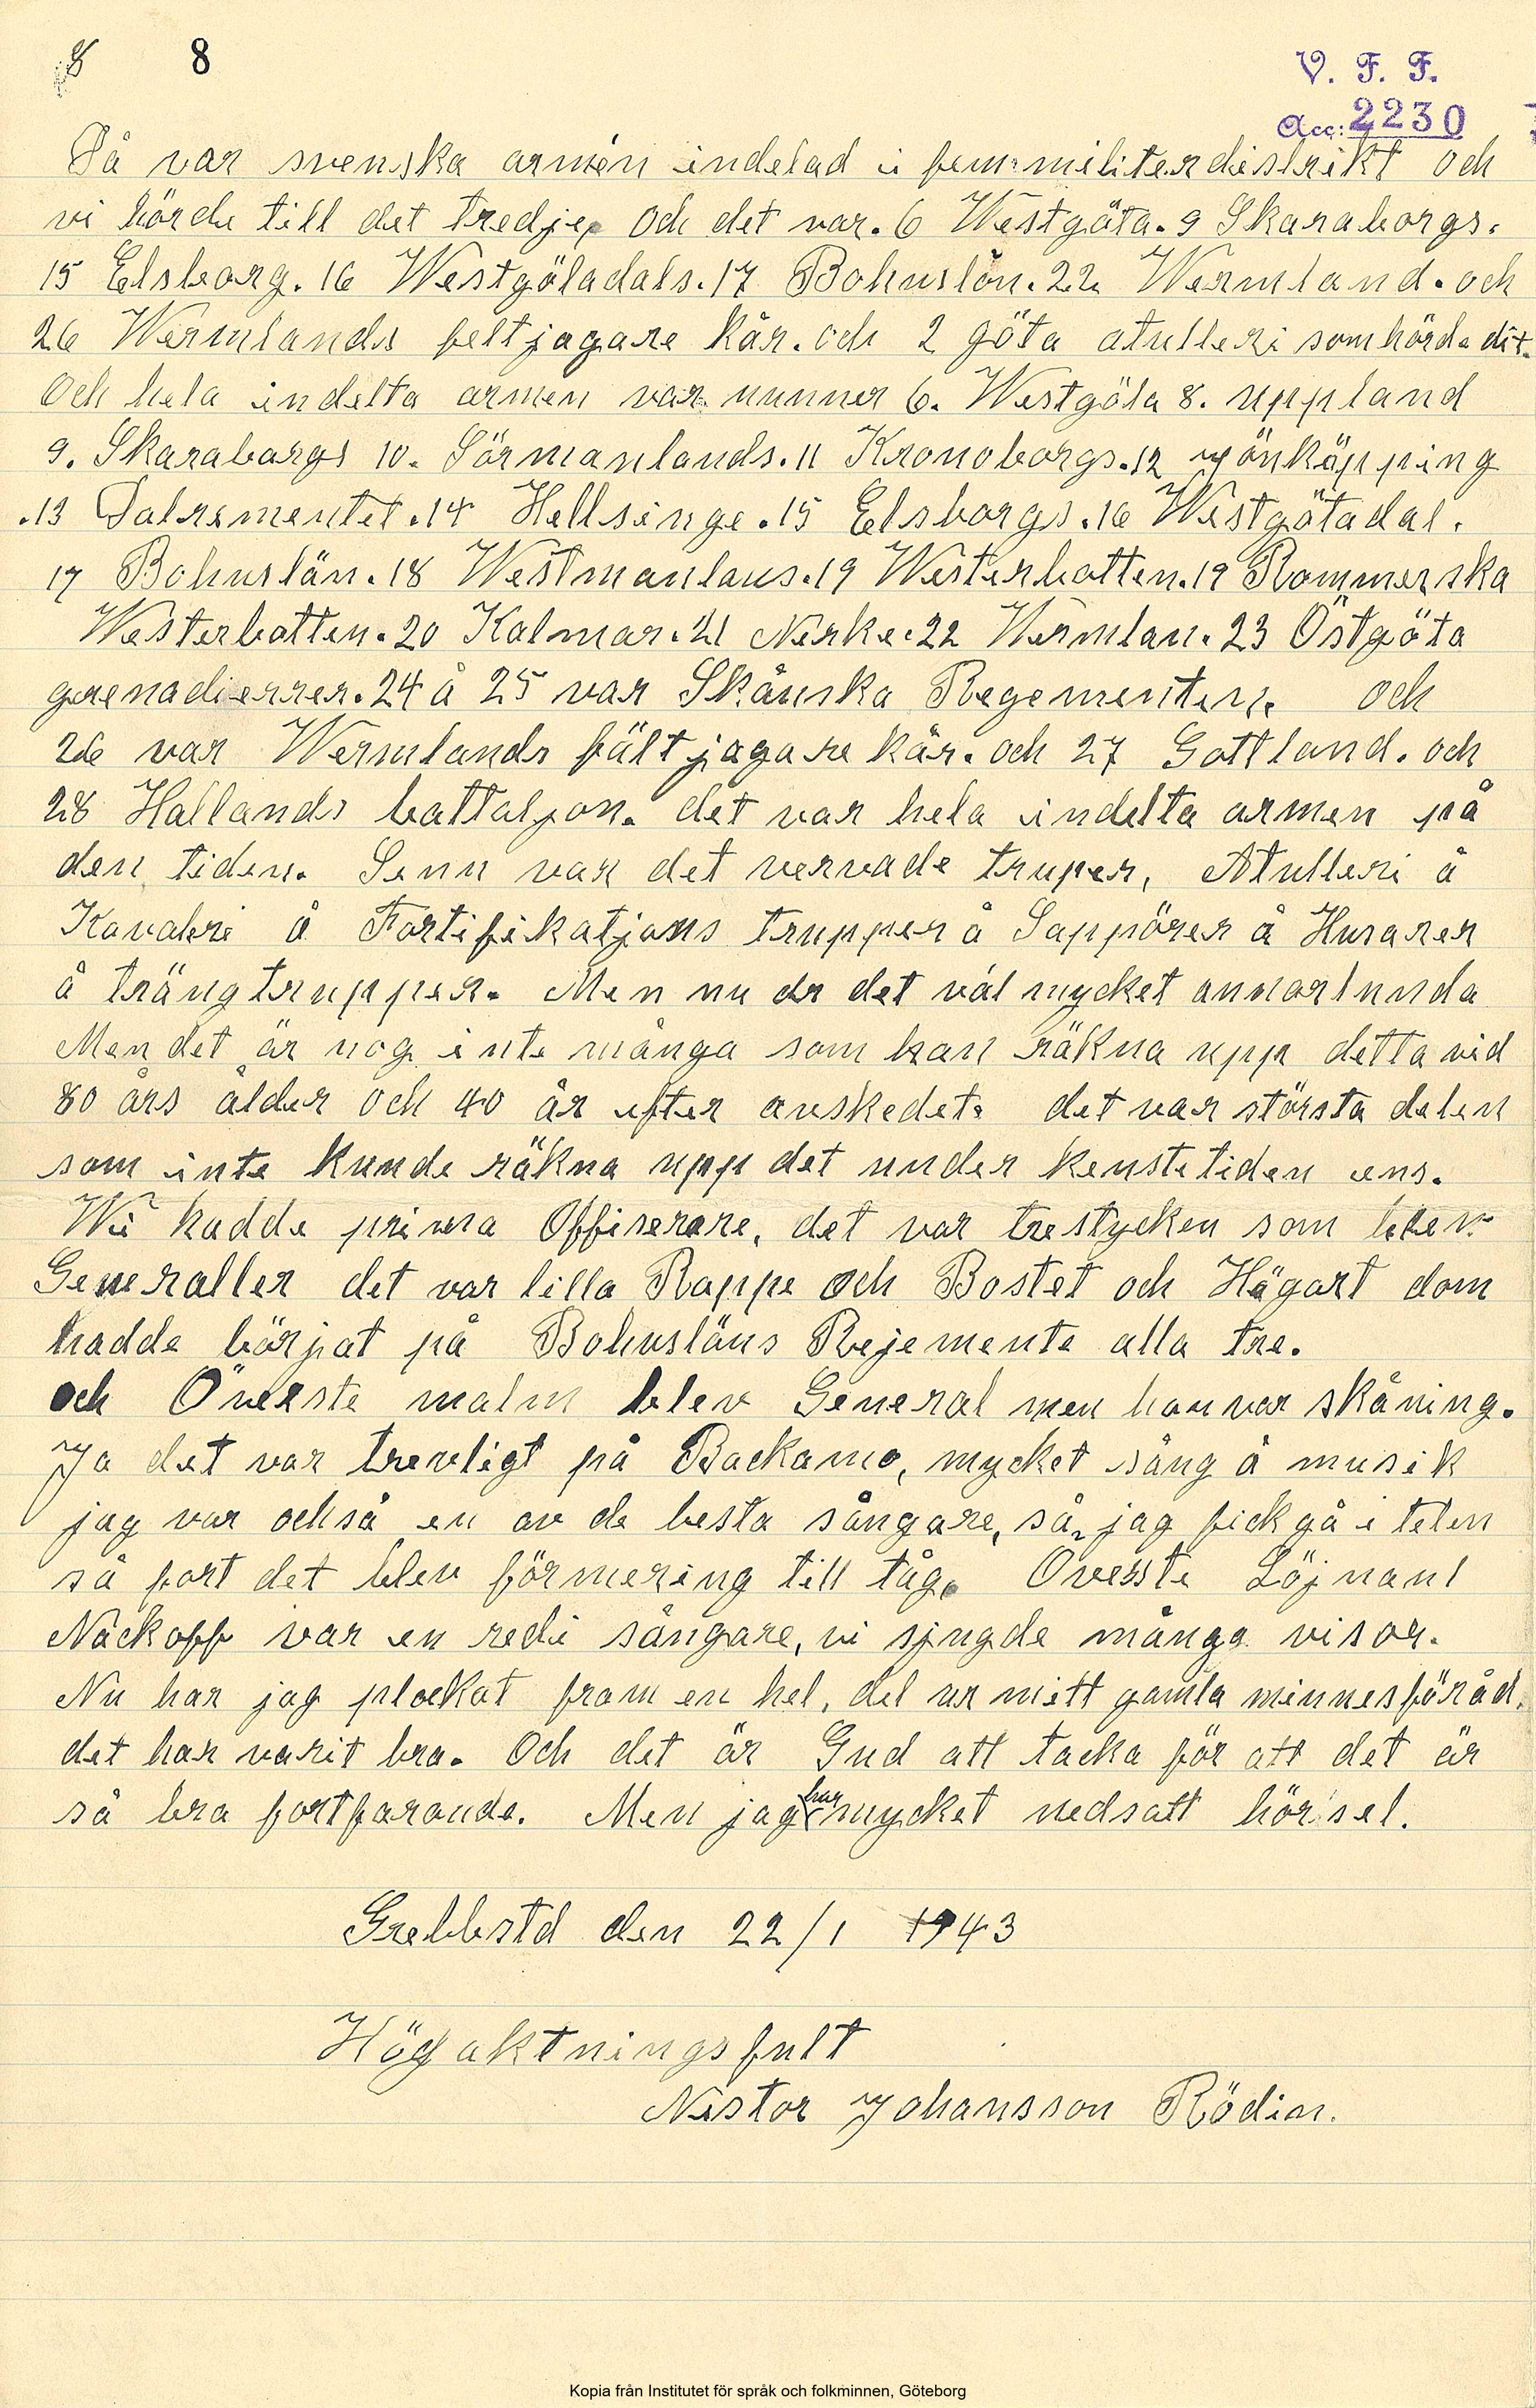 8 8
V. F. F.
Acc: 2230
Då var svenska armén indelad i fem militerdistrikt och
vi hörde till det tredje, och det var. 6 Westgöta. 9 Skaraborgs.
15 Elsborg. 16 Westgötadals. 17 Bohuslän. 22 Wermland. och
26 Wermlands feltjagare kår. och 2 göta atulleri som hörde dit.
Och hela indelta armen var numner 6. Westgöta 8. uppland
9. Skaraborgs 10. Sörmanlands. 11 Kronoborgs. 12 yönköpping
.13 Dalrementet. 14 Hellsinge. 15 Elsborgs. 16 Westgötadal.
17 Bohuslän. 18 Westmanlans. 19 Westerbotten. 19 Rommerska
Westerbotten. 20 Kalmar. 21 Nerke. 22 Vermlan. 23 Östgöta
grenadierrer. 24 å 25 var Skånska Regementen. och
26 var Wermlands fältjagare kår. och 27 Gottland. och
28 Hallands battaljon. det var hela indelta armen på
den tiden. Senn var det vervade truper, Atulleri å
Kavaleri å Fortifikatjons trupper å Sappörer å Husarer
å trängtrupper. Men nu är det väl mycket annorlunda
Men det är nog inte många som kan räkna upp detta vid
80 års ålder och 40 år efter avskedet. det var största delen
som inte kunde räkna upp det under kenstetiden ens.
Wi hadde prima Offiserare, det var trestycken som blev
Generaller det var lilla Rappe och Bostet och Hägart dom
hadde börjat på Bohusläns Rejemente alla tre.
och Överste malm blev General men han var skåning.
Ja det var trevligt på Backamo, mycket sång å musik
jag var också en av de besta sångare, så jag fick gå i teten
så fort det blev förmering till tåg. Överste Löjnant
Nackoff var en redi sångare, vi sjngde många visor.
Nu har jag plockat fram en hel, del ur mitt gamla minnesföråd.
det har varit bra. Och det är Gud att tacka för att det är
så bra fortfarande. Men jag har mycket nedsatt hörsel.
Grebbstd den 22/1 1943
Högaktningsfult
Nestor Johansson Rödin.
Kopia från Institutet för språk och folkminnen, Göteborg